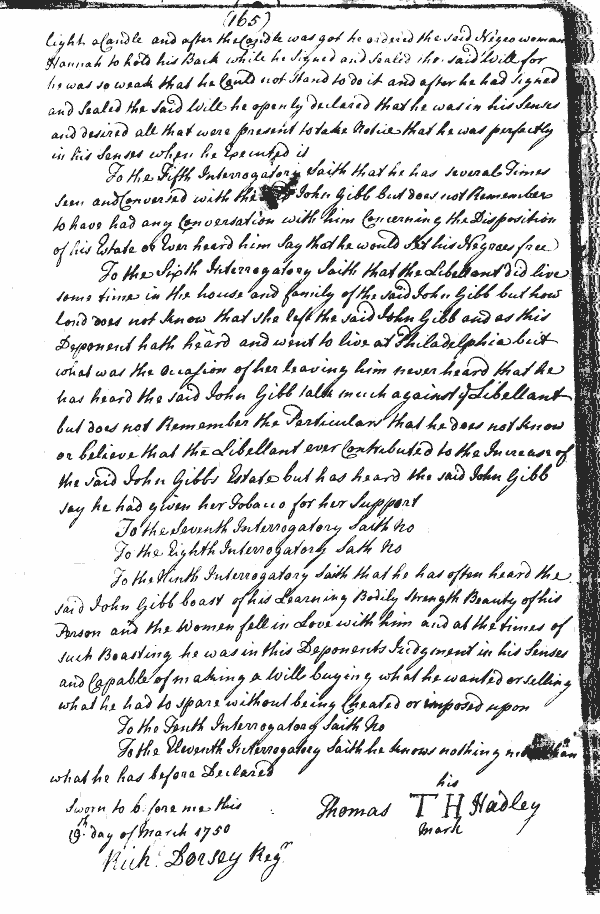 (165)
light a Candle and after the Candle was got he ordered the said Negro woman
Hannah to hold his Back while he signed and sealed the said Will for
he was so weak that he Could not stand to do it and after he had signed
and sealed the said Will he openly declared that he was in his Senses
and desired all that were present to take Notice that he was perfectly
in his Senses when he Executed it
To the Fifth Interrogatory Saith that he has several Times
seen and Conversed with the John Gibb but does not Remember
to have had any Conversation with him Concerning the Disposition
of his Estate or Ever heard him Say that he would set his Negroes free
To the Sixth Interrogatory Saith that the Libellant did live
some time in the house and family of the said John Gibb but how
long does not know that she left the said John Gibb and as this
Deponent hath heard and went to live at Philadelphia but
what was the occasion of her leaving him never heard that he
has heard the said John Gibb talk much against ye Libellant
but does not Remember the Particulars that he does not know
or believe that the Libellant ever Contributed to the Increase of
the said John Gibbs Estate but has heard the said John Gibb
say he had given her Tobacco for her Support
To the Seventh Interrogatory Saith No
To the Eighth Interrogatory Sath No
To the Ninth Interrogatory Saith that he has often heard the
said John Gibb boast of his Learning Bodily strength Beauty of his
Person and the Women fell in Love with him and at the times of
such Boasting he was in this Deponents Judgment in his Senses
and Capable of making a Will buying what he wanted or selling
what he had to spare without being Cheated or imposed upon
To the Tenth Interrogatory Saith No
To the Eleventh Interrogatory Saith he knows nothing more than
what he has before Declared
his
Sworn to before me this Thomas T H Hadley
19th day of March 1750 mark
Richd Dorsey Regr